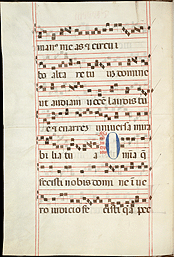 man⁹ meas ⁊ circu i
bo alta re tu us domine
ut audiam vocē laudis tu
e ⁊ enarrē universa mira
bi lia tu a Omnia q̄
fecisti nobis domi ne i ve
ro iudicio fe cisti q̄a pec